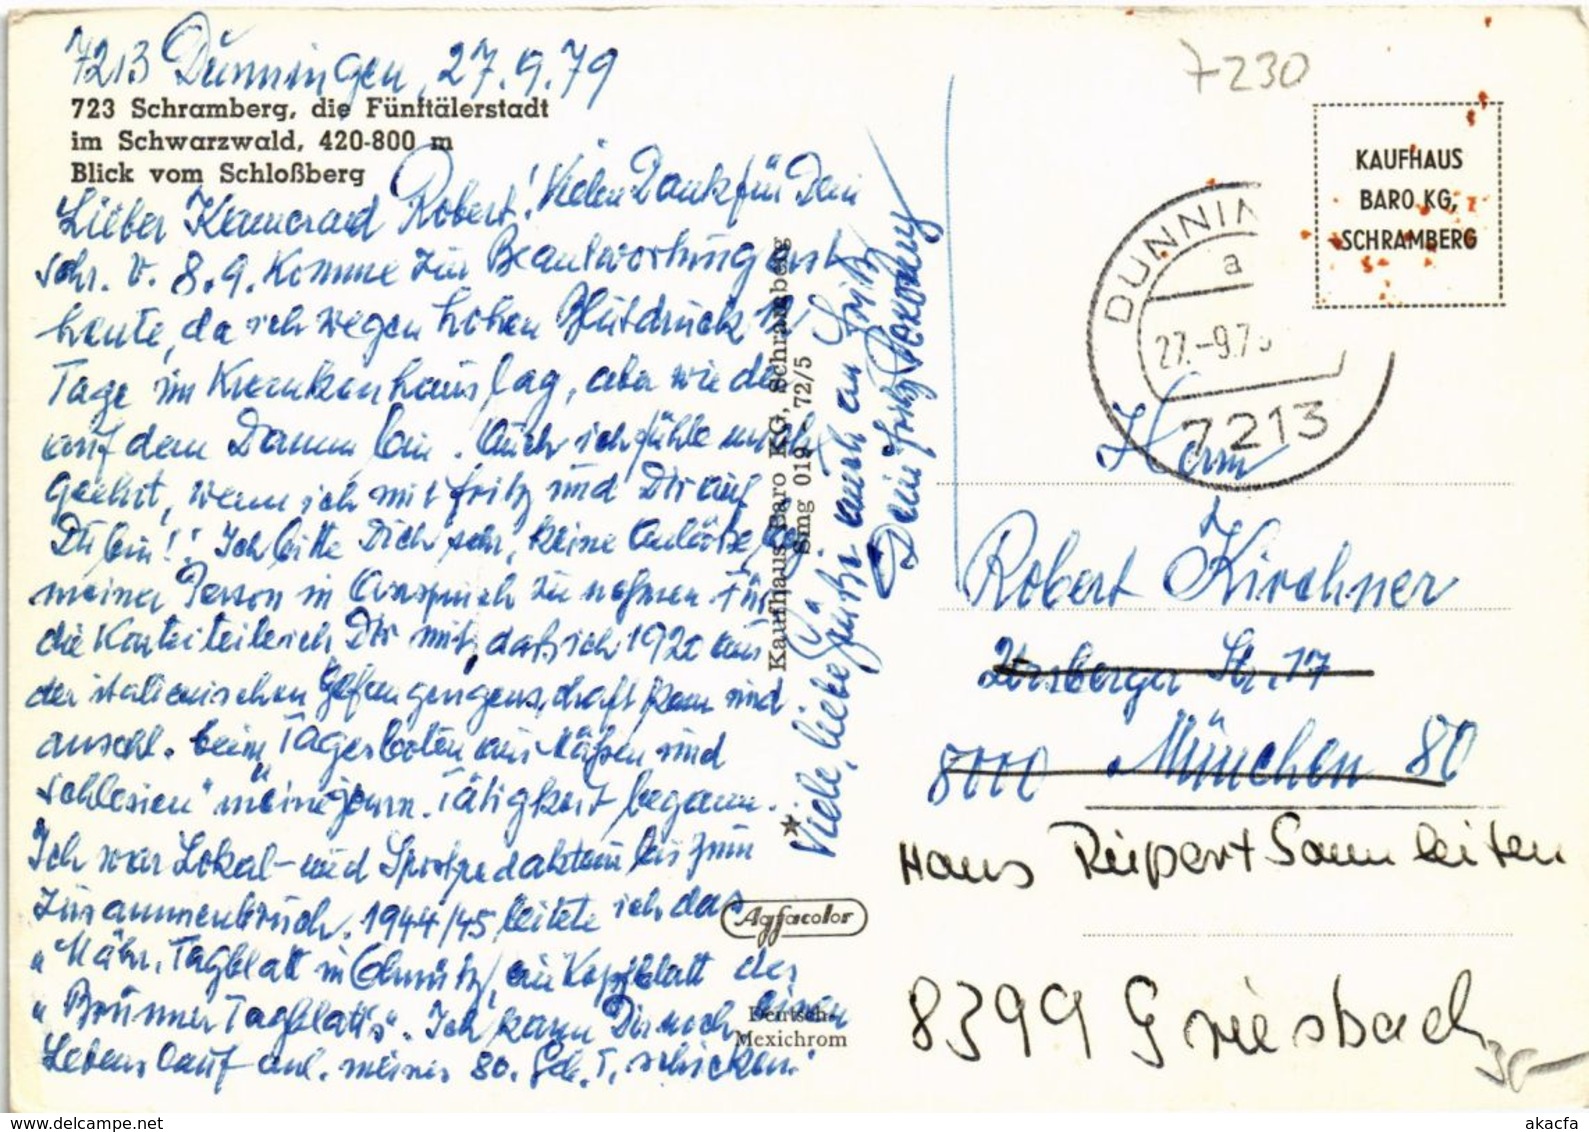 7213 Dunningen, 27.9.79
723 Schramberg, die Fünftälerstadt
im Schwarzwald, 420-800 m
Blick vom Schloßberg
Lieber Kamerad Robert! Vielen Dank für Dein
schr. v. 8.9. Komme zur Beantwortung erst
heute, da ich wegen hohen Blutdruck 12
Tage im Krankenhaus lag, aber wieder
auf dem Damm bin. Auch ich fühle mich
geehrt, wenn ich mit Fritz und Dir auf
Du bin!! Ich bitte Dich sehr, keine Anlässe bzg.
meiner Person in Anspruch zu nehmen. Für
die Kartei teile ich Dir mit, daß ich 1920 aus
der italienischen Gefangenschaft kam und
anschl. beim "Tagesboten aus Mähren und
Schlesien" meine journ. Tätigkeit begann.
Ich war Lokal- und Sportredakteur bis zum
Zusammenbruch. 1944/45 leitete ich das
"Mähr. Tagblatt in Olmütz, ein Kopfblatt des
"Brünner Tagblatts". Ich kann Dir noch einen
Lebenslauf anl. meines 80. Geb. T. schicken.
Viele, liebe Grüße auch an Fritz
Dein Fritz
Kaufhaus Baro KG, Schramberg
Smg 019 - 72/5
Agfacolor
Deutsch-
Mexichrom
7230
KAUFHAUS
BARO KG,
SCHRAMBERG
DUNNIN
a
27.-9.7
7213
Herrn
Robert Kirchner
Str. 17
8000 München 80
Hans Rupert Sonnleiten
8399 Griesbach
www.delcampe.net
akacfa